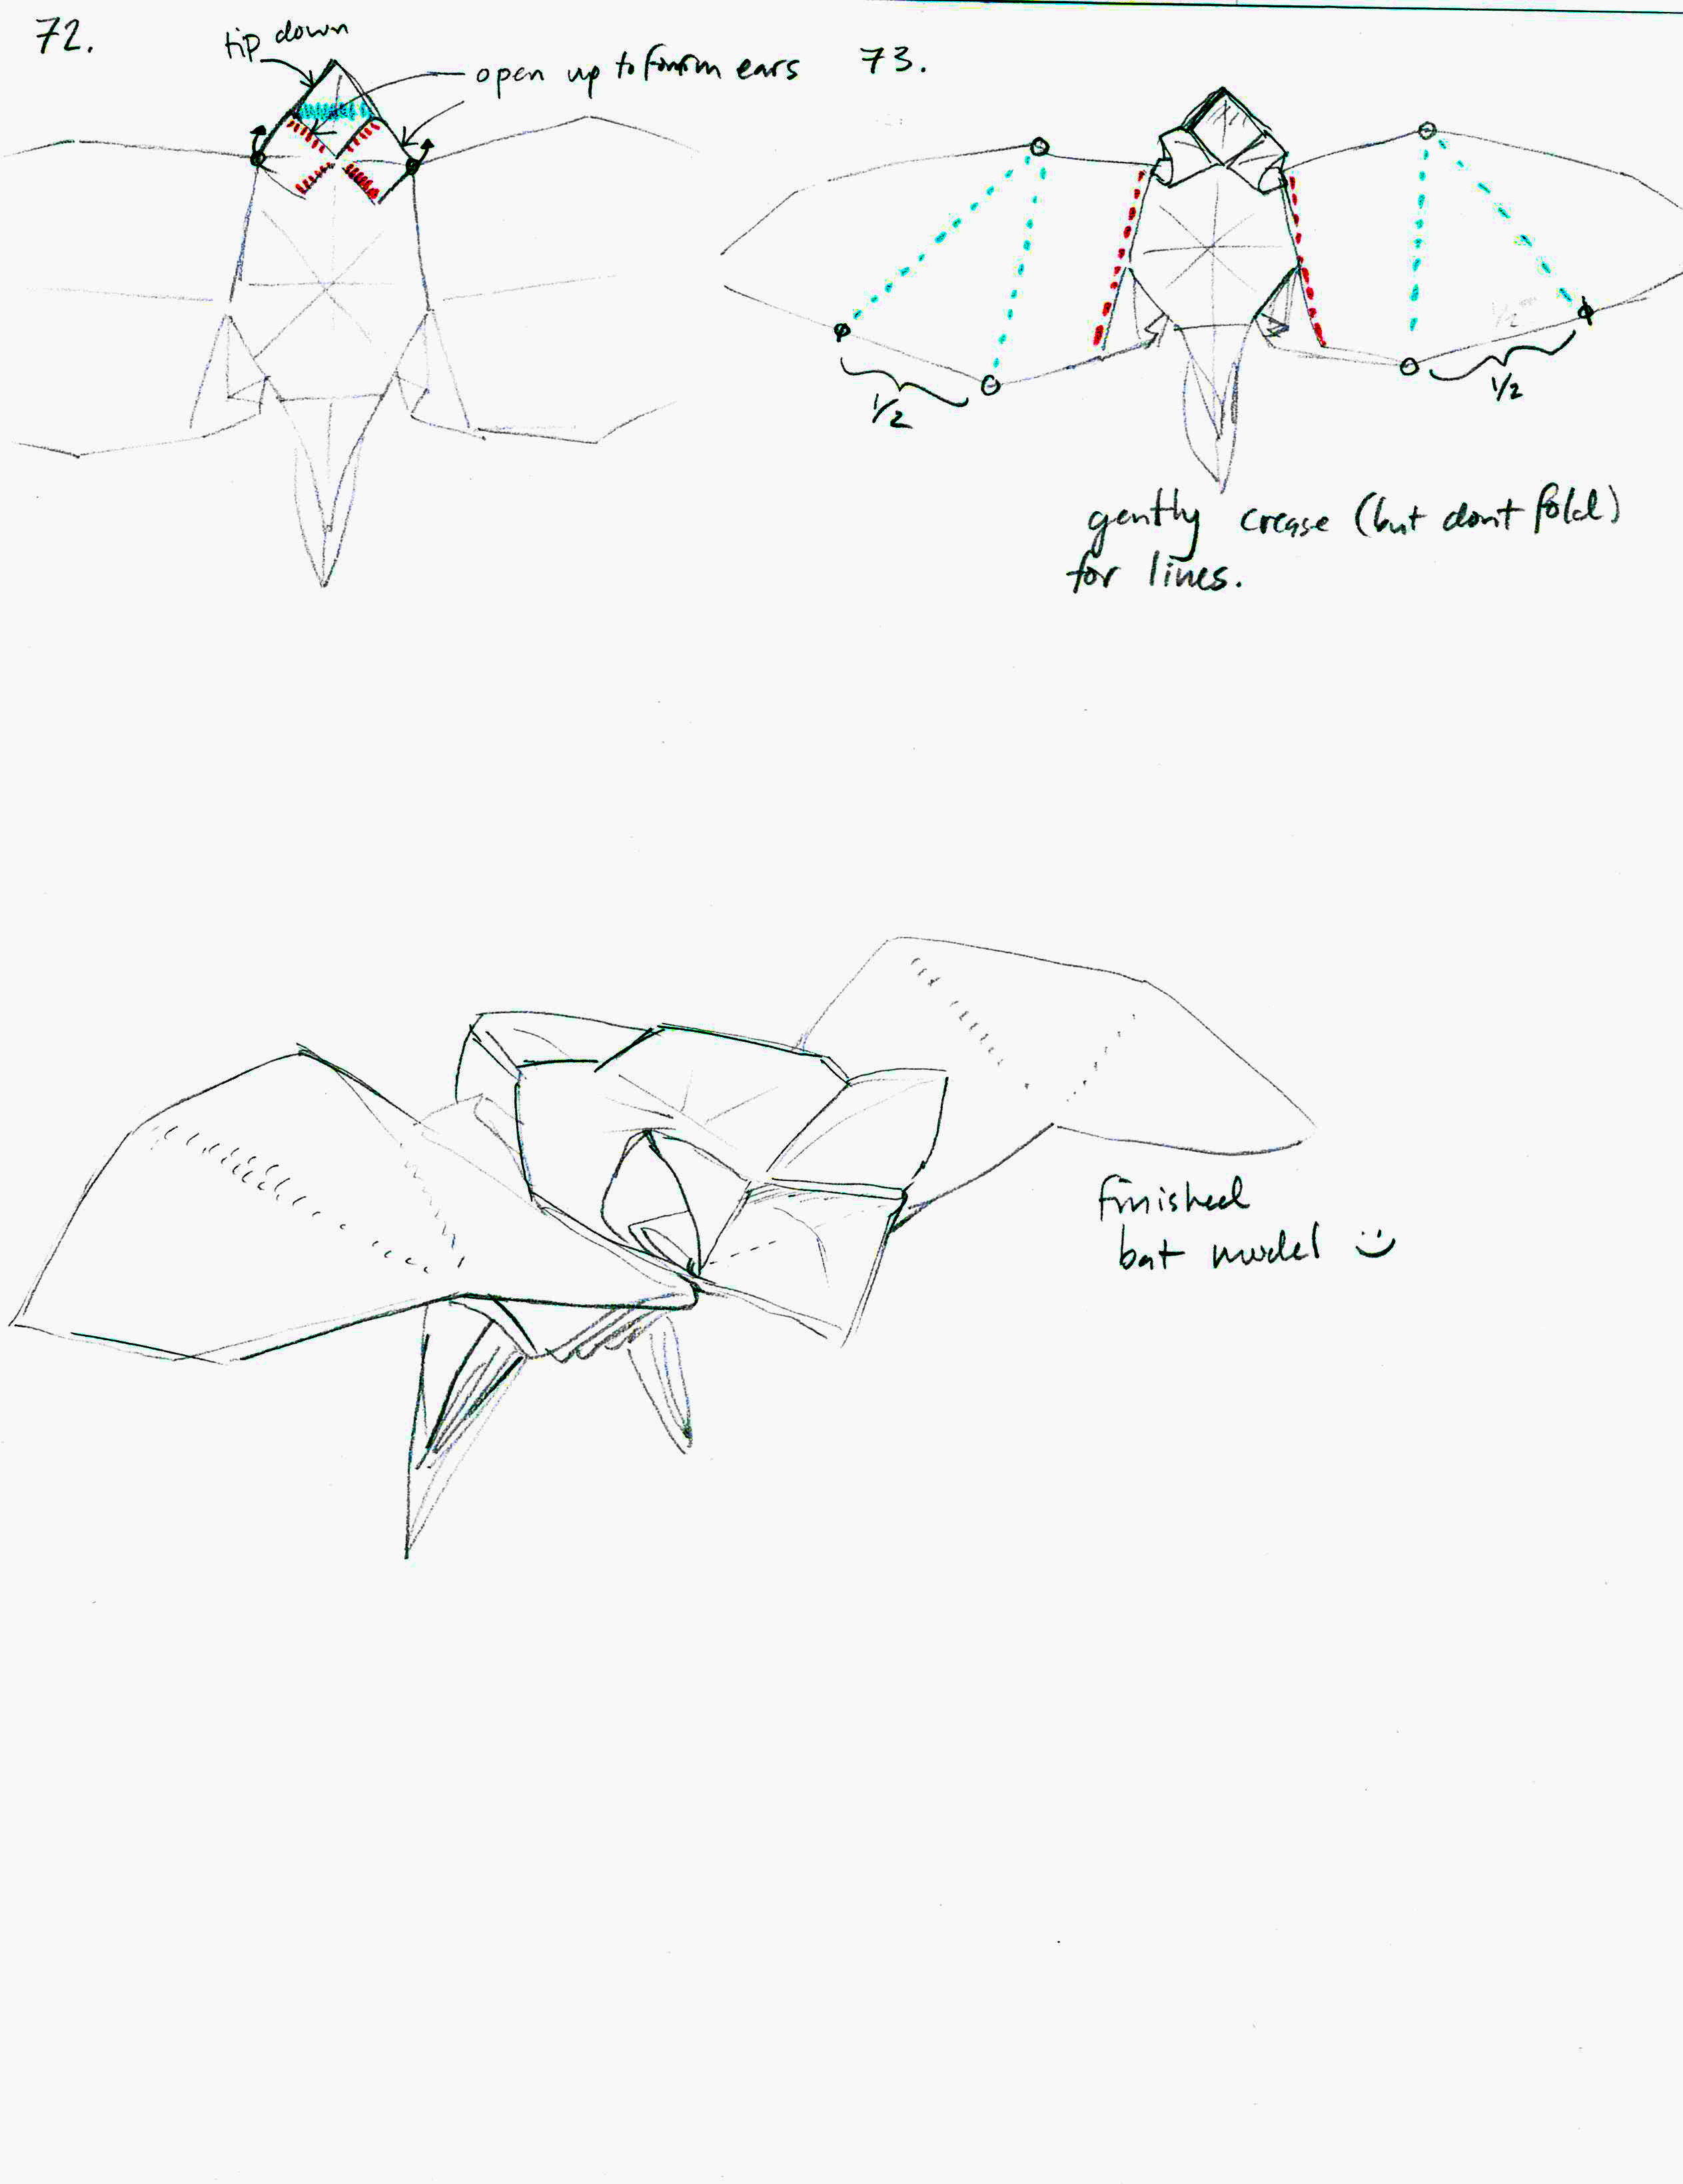 72.
tip down
open up to form ears
73.
1/2
1/2
gently crease (but dont fold)
for lines.
finished
bat model